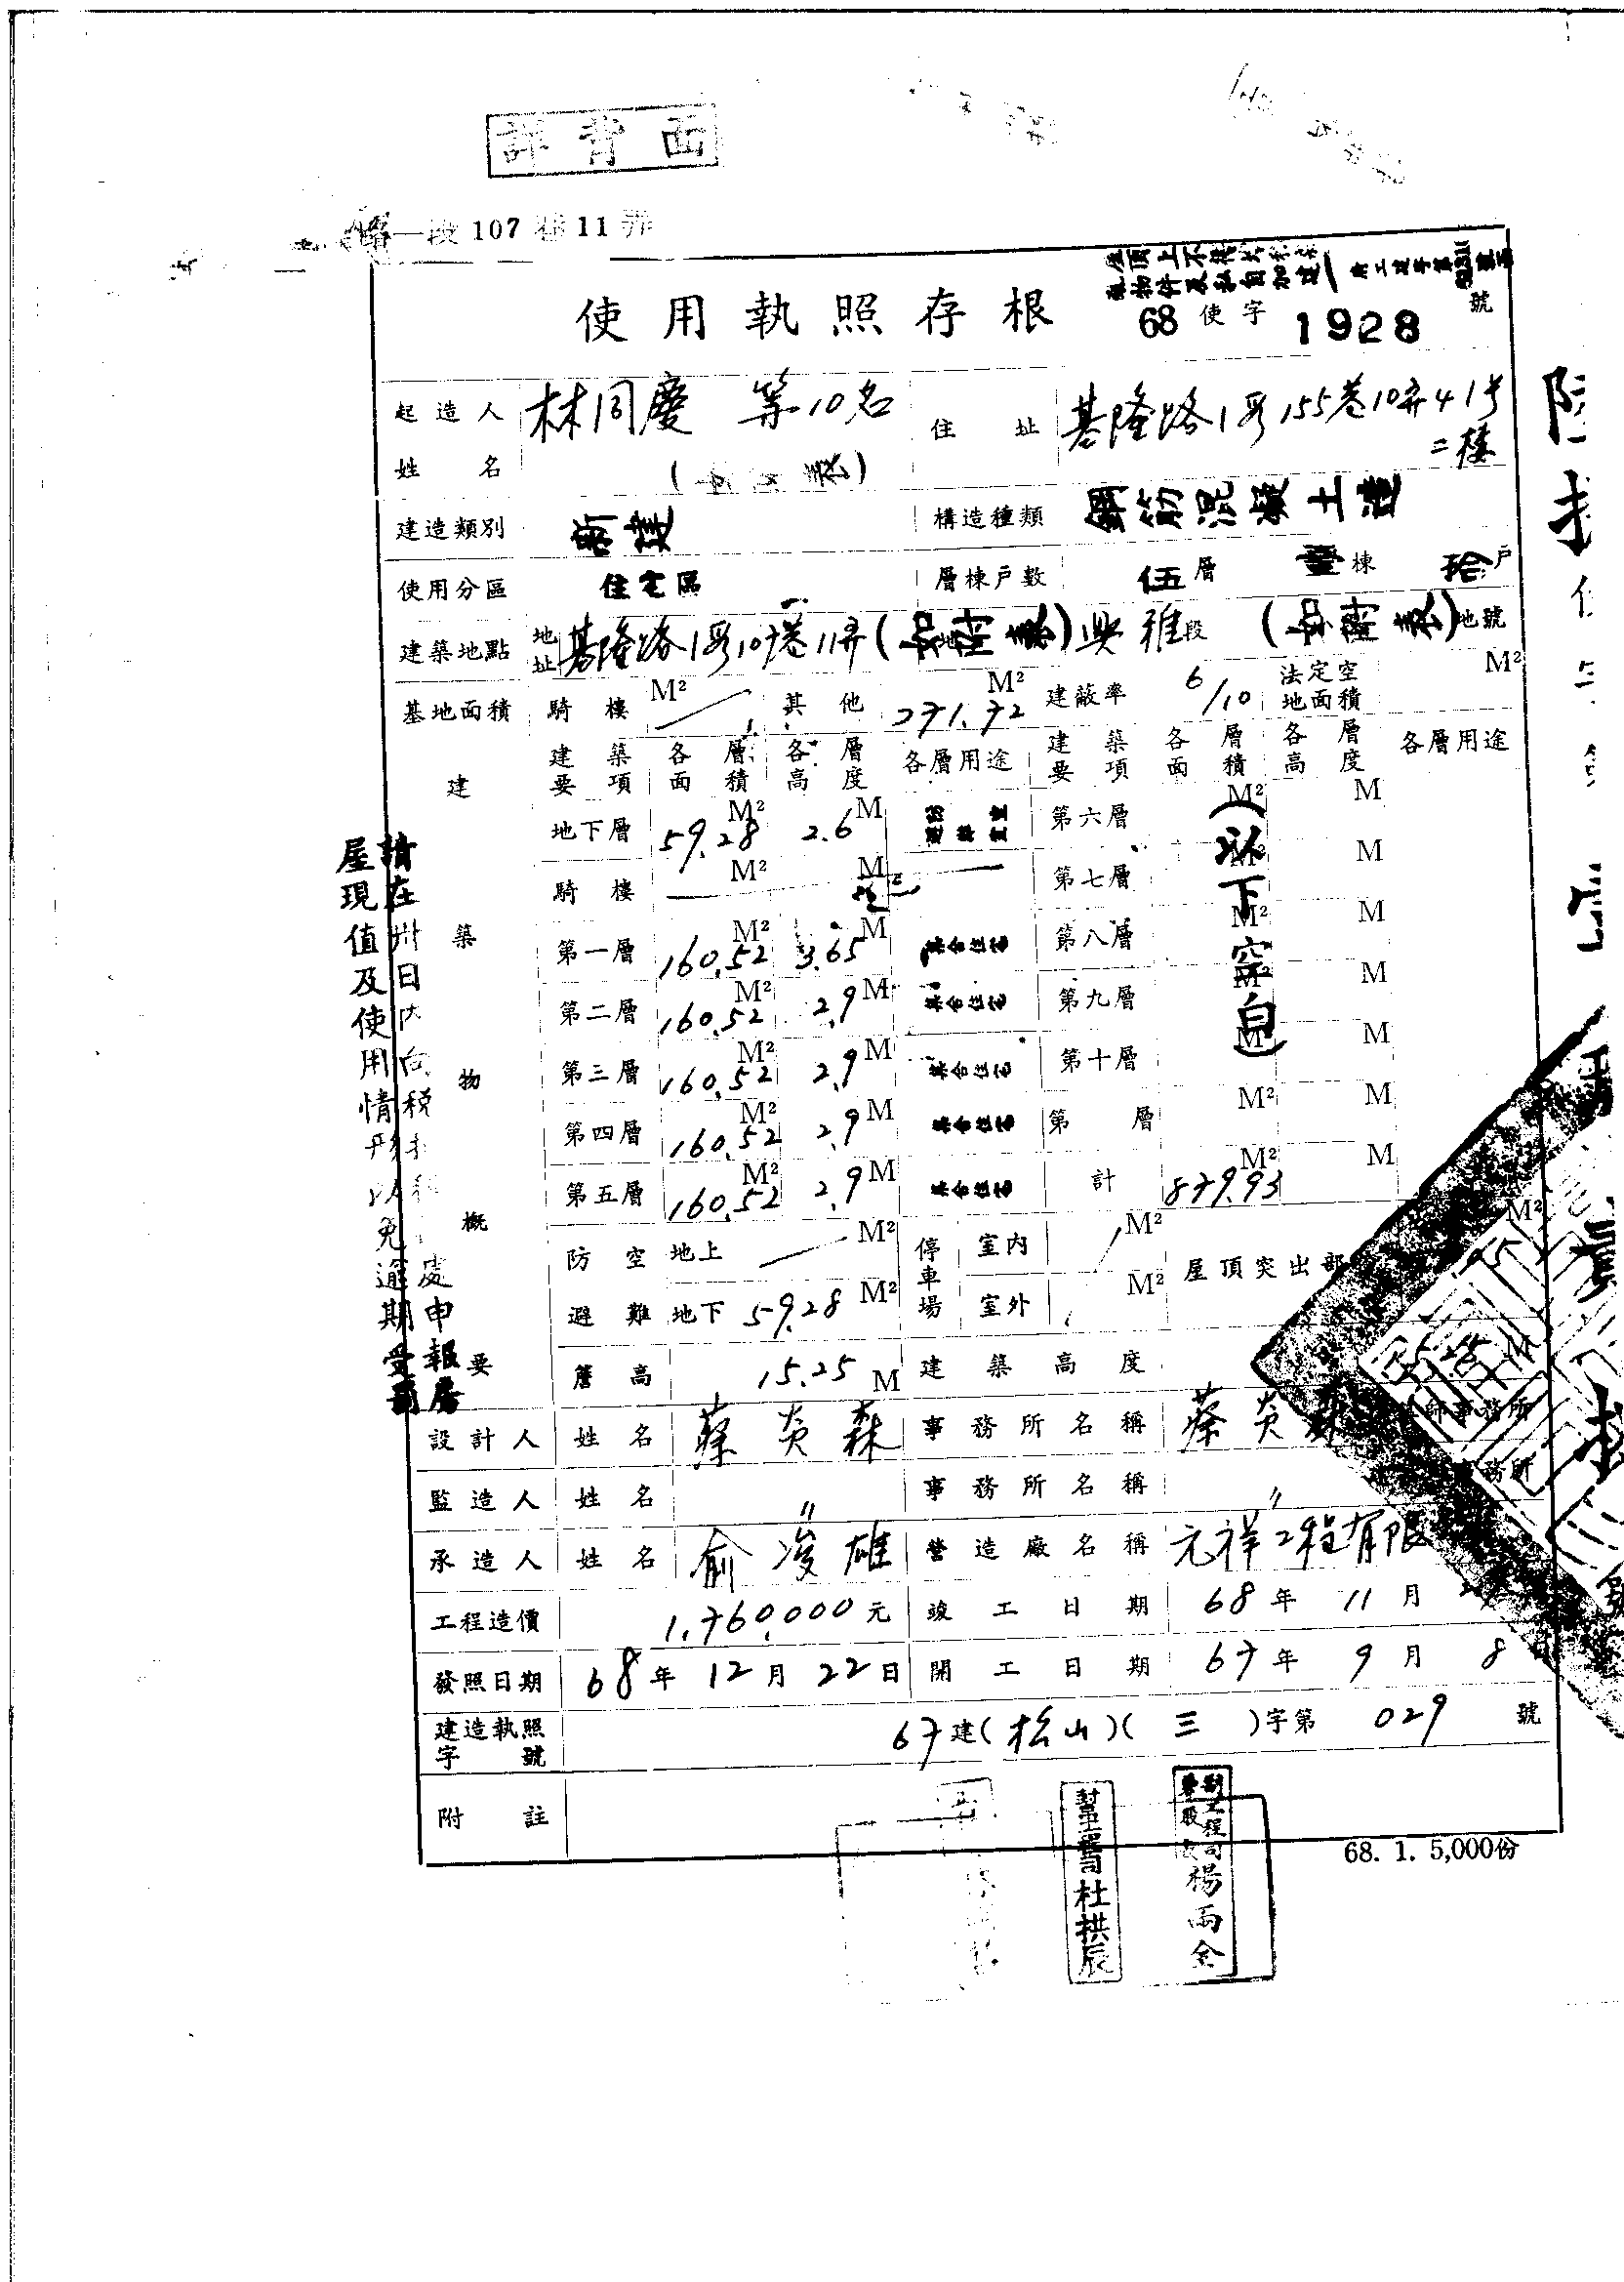 詳背面
路一段107巷11弄
使用執照存根
68使字1928號
起造人姓名 林同慶 等10名
住址 基隆路1段155巷10弄41号二樓
建造類別 新建 構造種類 鋼筋混凝土造
使用分區 住宅區 層棟戶數 伍層 壹棟 拾戶
建築地點 地址 基隆路1段107巷11弄 興雅段 地號
基地面積 騎樓 M² 其他 271.72 M² 建蔽率 6/10 法定空地面積 M²
建築要項 各層面積 各層高度 各層用途 建築要項 各層面積 各層高度 各層用途
建築物概要
地下層 59.28 M² 2.6 M 第六層 M² M
騎樓 M² M 第七層 M² M
第一層 160.52 M² 3.65 M 集合住宅 第八層 M² M
第二層 160.52 M² 2.9 M 集合住宅 第九層 M² M
第三層 160.52 M² 2.9 M 集合住宅 第十層 M² M
第四層 160.52 M² 2.9 M 集合住宅 第 層 M² M
第五層 160.52 M² 2.9 M 集合住宅 計 879.93 M² M
(以下空白)
防空避難 地上 M² 停車場 室內 M² 屋頂突出部 M²
地下 59.28 M² 室外 M²
簷高 15.25 M 建築高度 M
設計人 姓名 蔡炎森 事務所名稱 蔡炎森 師事務所
監造人 姓名 〃 事務所名稱 〃 務所
承造人 姓名 俞俊雄 營造廠名稱 元祥工程有限
工程造價 1,760,000元 竣工日期 68年11月
發照日期 68年12月22日 開工日期 67年9月8
建造執照字號 67建(松山)(三)字第029號
附註
68. 1. 5,000份
杜拱辰
楊雨全
請在卅日內向稅 處申報房
屋現值及使用情形以免逾期受